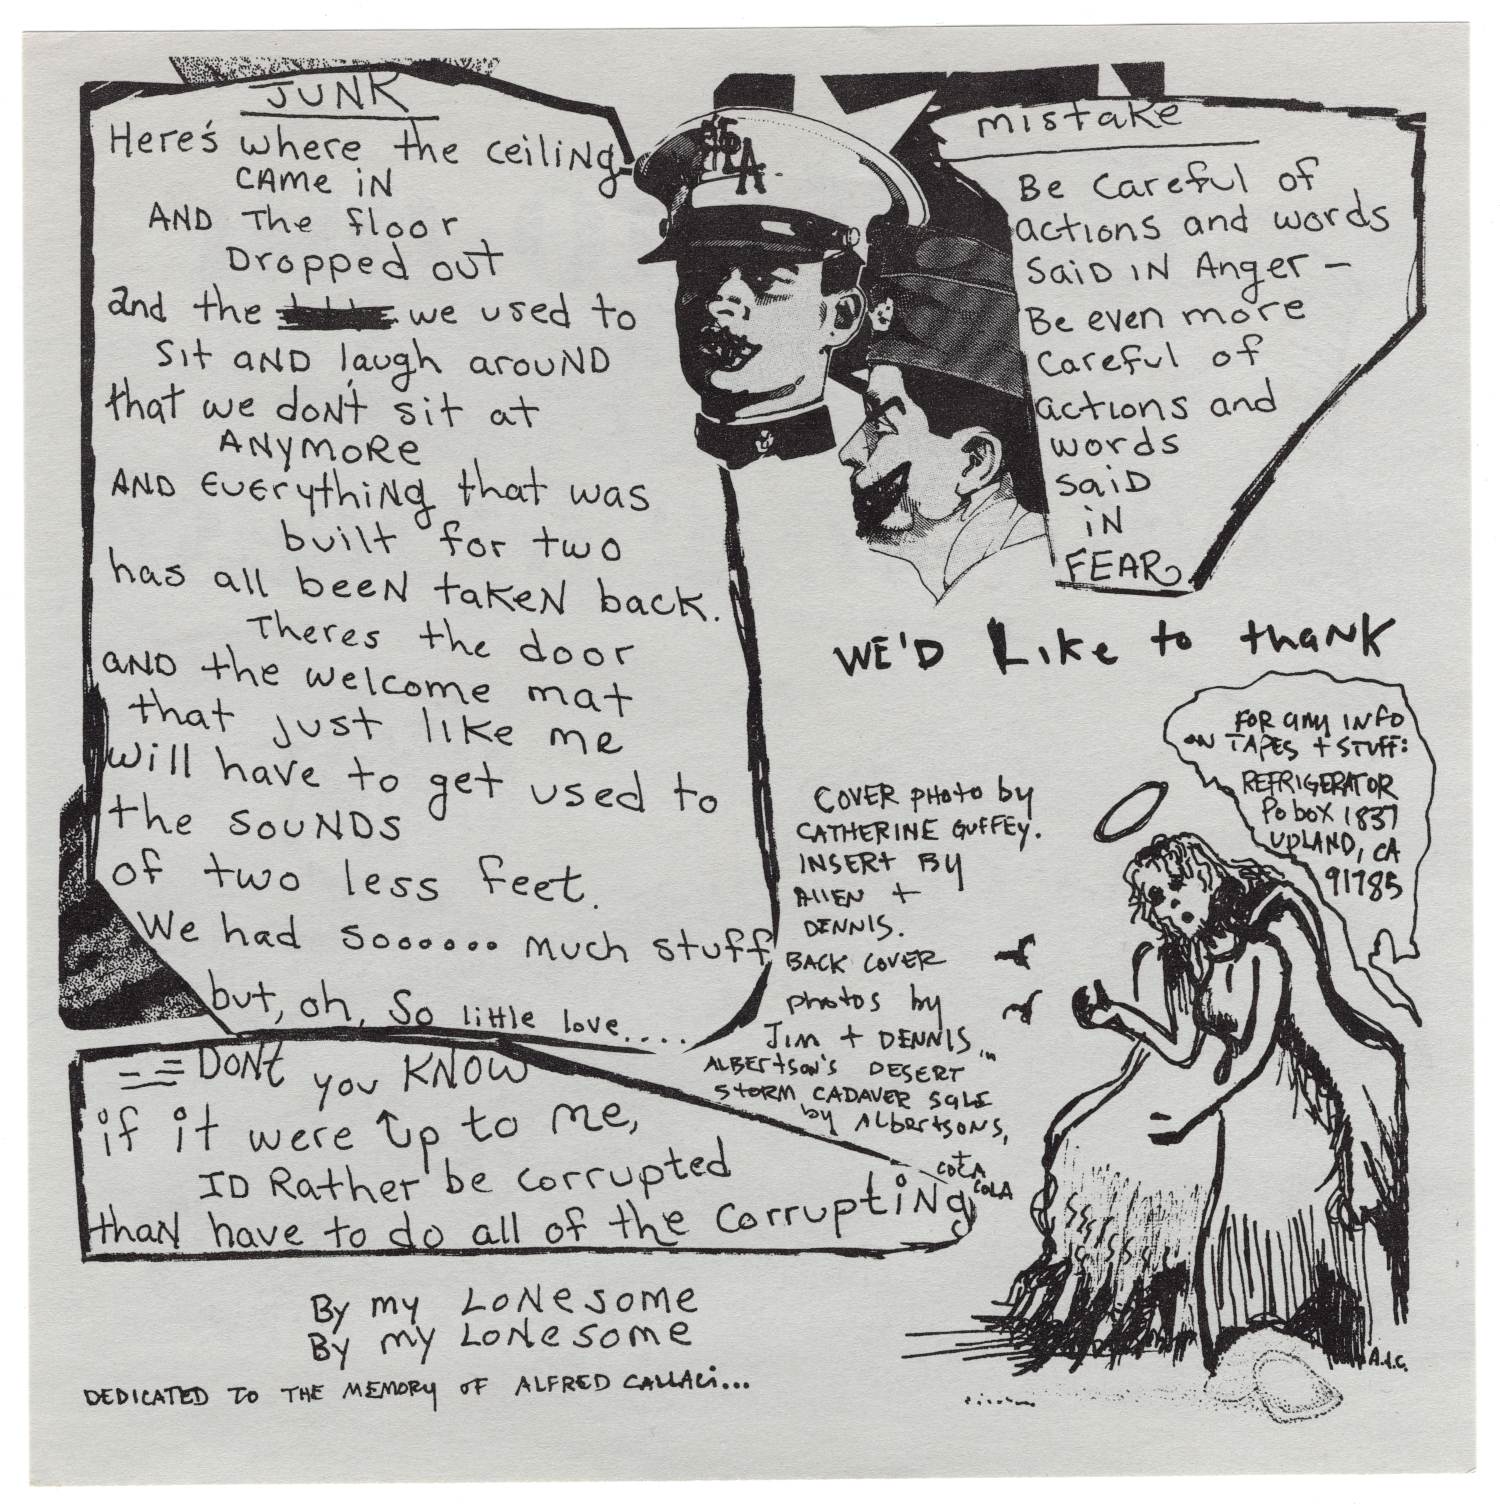 JUNK
Here's where the ceiling
CAME iN
AND The floor
Dropped out
and the we used to
Sit aND laugh arouND
that we don't sit at
ANyMoRe
AND EvErythiNg that was
built for two
has all beeN takeN back.
Theres the door
aND the welcome mat
that just like me
will have to get used to
the SOUNDS
of two less feet.
We had soooooo much stuff
but, oh, So little love....
DONt you KNOW
if it were up to me,
ID Rather be corrupted
thaN have to do all of the CorruptiNg
By my LoNesome
By my LoNesome
DEDICATED TO THE MEMORY OF ALFRED CALLACi...
mistake
Be Careful of
actions and words
SaiD IN Anger –
Be even more
Careful of
actions and
words
SaiD
iN
FEAR
WE'D Like to thaNK
COVER pHoto by
CATHERINE GUFFEY.
INSERT BY
AllEN +
DENNIS.
BACK COVER
photos by
Jim + DENNIS
in
ALBERtson's DESERT
StORM CADAVER SALE
by AlbertsONS,
COCA
COLA
FOR any INFO
ON TAPES + STUFF:
REFRIGERATOR
Po box 1837
UPLAND, CA
91785
A.I.C.